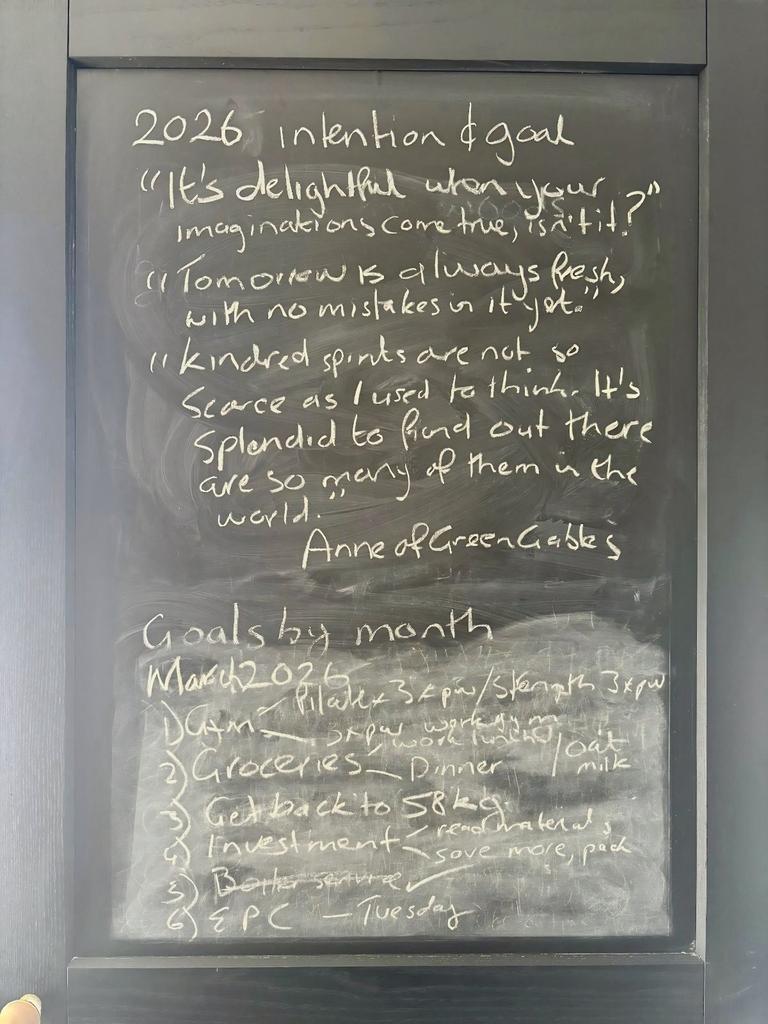 2026 intention & goal
"It's delightful when your
imaginations come true, isn't it?"
"Tomorrow is always fresh,
with no mistakes in it yet."
"Kindred spirits are not so
scarce as I used to think. It's
splendid to find out there
are so many of them in the
world."
Anne of Green Gables
Goals by month
March 2026
Pilates 3xpw/Strength 3xpw
1) Gym
3xpw work gym
work lunch /oat
2) Groceries - Dinner milk
3) Get back to 58kg.
read materials
4) Investment
save more,
5) Boiler service ✓
6) EPC - Tuesday